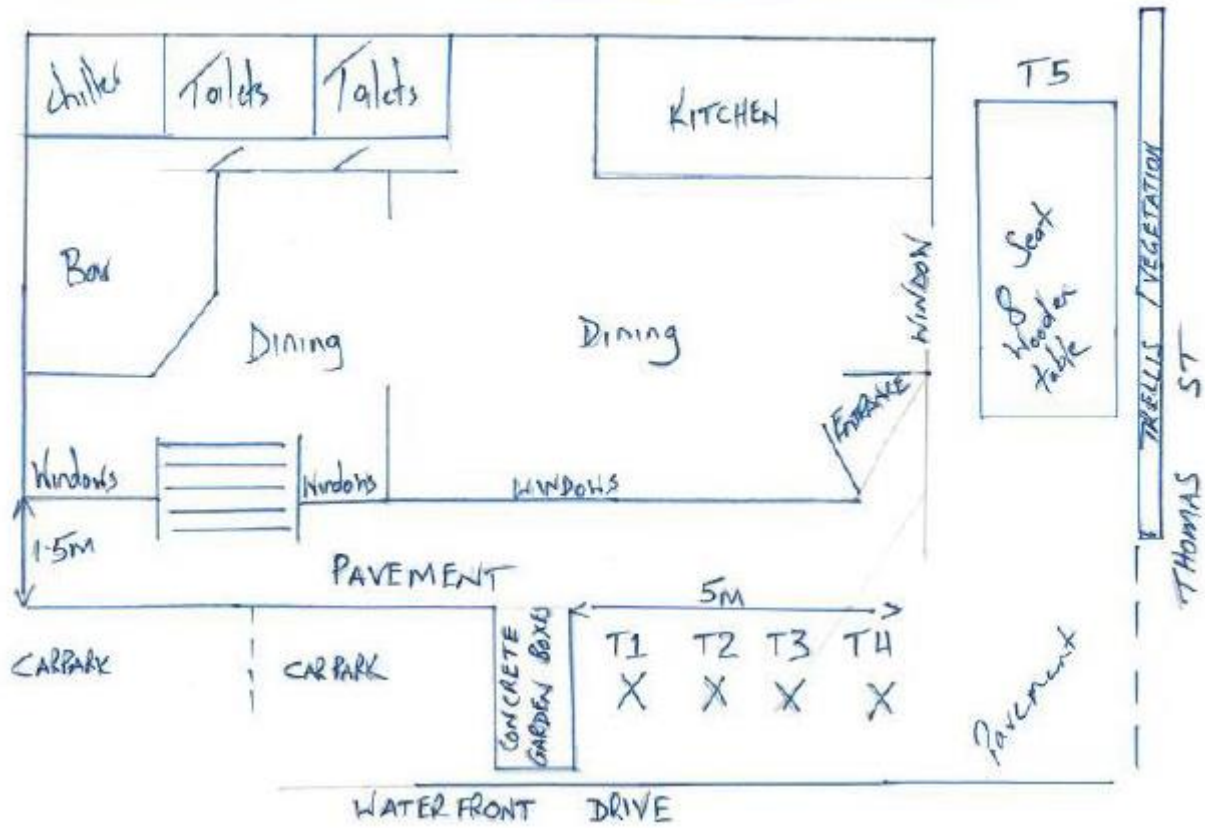 T5
Chiller
Toilets
Toilets
KITCHEN
Bar
Dining
Dining
WINDOW
8 Seat
Wooden
table
TRELLIS / VEGETATION
THOMAS ST
ENTRANCE
Windows
Windows
WINDOWS
1.5M
PAVEMENT
5M
CARPARK
CARPARK
CONCRETE
GARDEN BOXES
T1 T2 T3 T4
X X X X
Pavement
WATERFRONT DRIVE